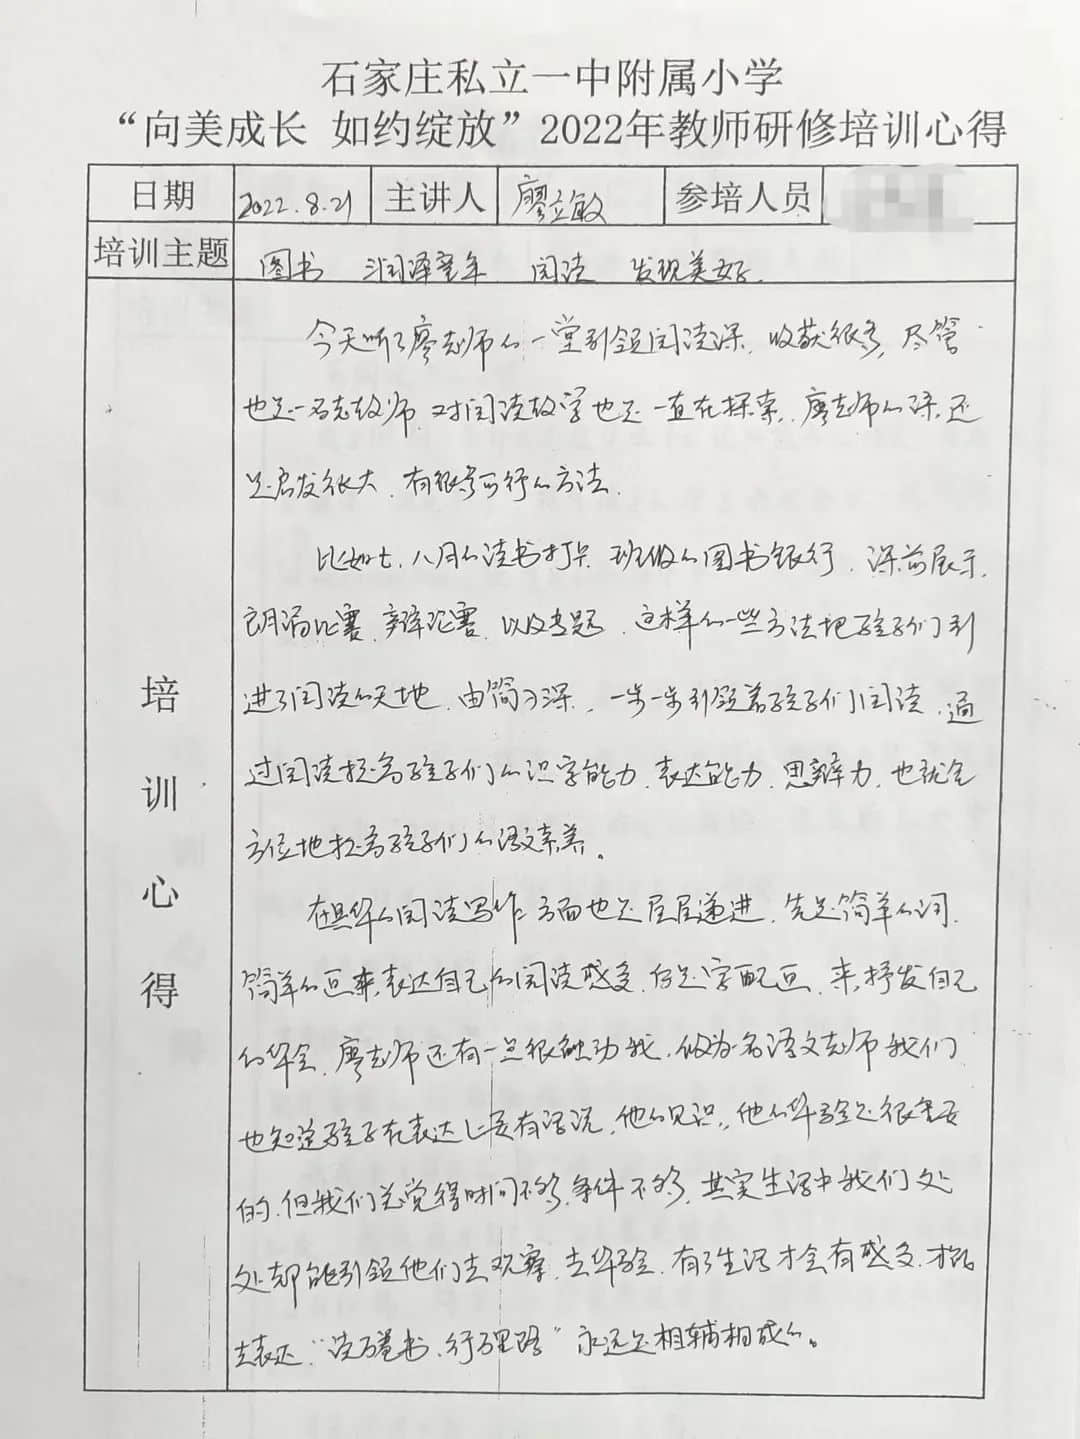 石家庄私立一中附属小学
“向美成长 如约绽放”2022年教师研修培训心得
日期 2022.8.21 主讲人 廖立敏 参培人员
培训主题 图书 润泽童年 阅读 发现美好.
培训心得
今天听了廖老师的一堂引领阅读课，收获很多，尽管
也是一名老教师，对阅读教学也是一直在探索，廖老师的课，还
是启发很大，有很多可行的方法.
比如七、八月的读书打卡，班级的图书银行，课前展示，
朗诵比赛，辩论赛，以及专题，这样的一些方法把孩子们引
进了阅读的天地，由简入深，一步一步引领着孩子们阅读，通
过阅读提高孩子们的识字能力、表达能力、思辨力，也就全
方位地提高孩子们的语文素养。
在具体的阅读写作方面也是层层递进，先是简单的词，
简单的画来表达自己的阅读感受，后是字配画，来抒发自己
的体会，廖老师还有一点很触动我，做为名语文老师我们
也知道孩子在表达上要有话说，他的见识，他的体验是很重要
的，但我们总觉得时间不够，条件不够，其实生活中我们处
处都能引领他们去观察，去体验，有了生活才会有感受，才能
去表达，“读万卷书、行万里路”永远是相辅相成的。